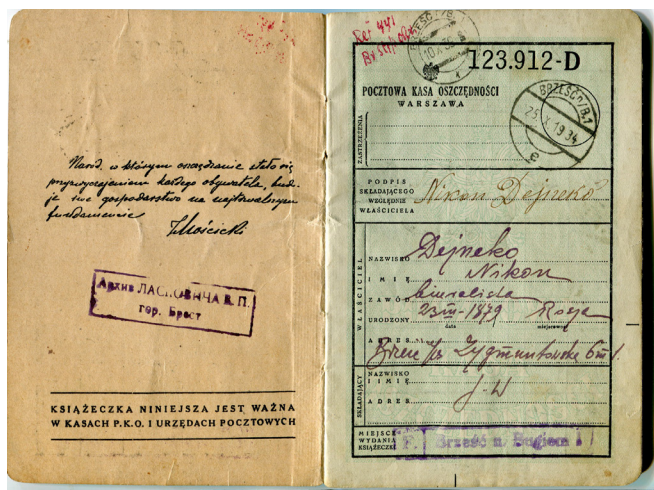 Naród, w którym oszczędzanie stało się
przyzwyczajeniem każdego obywatela, budu-
je swe gospodarstwo na najtrwalszym
fundamencie
I Mościcki
Архив ЛАСКОВИЧА В. П.
гор. Брест
KSIĄŻECZKA NINIEJSZA JEST WAŻNA
W KASACH P.K.O. I URZĘDACH POCZTOWYCH
123.912-D
POCZTOWA KASA OSZCZĘDNOŚCI
WARSZAWA
BRZEŚĆ n/B.1
25.X.1934
e
ZASTRZEŻENIA
PODPIS
SKŁADAJĄCEGO
WZGLĘDNIE
WŁAŚCICIELA
Nikon Dejneko
WŁAŚCICIEL
NAZWISKO Dejneko
IMIĘ Nikon
ZAWÓD biuralista
URODZONY 23/III-1879 Rosja
data miejscowość
ADRES Zygmuntowska
SKŁADAJĄCY
NAZWISKO
I IMIĘ
ADRES
MIEJSCE
WYDANIA
KSIĄŻECZKI
Brześć n. Bugiem 1